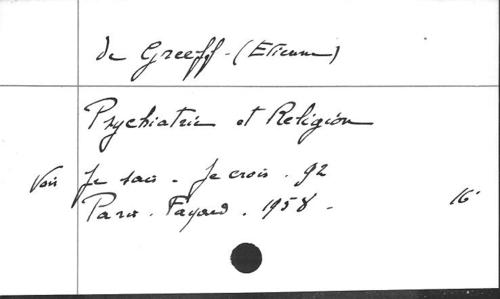 de Greeff - (Etienne)
Psychiatrie et Religion
Voir Je sais - Je crois . 92
Paris . Fayard . 1958 - 16°